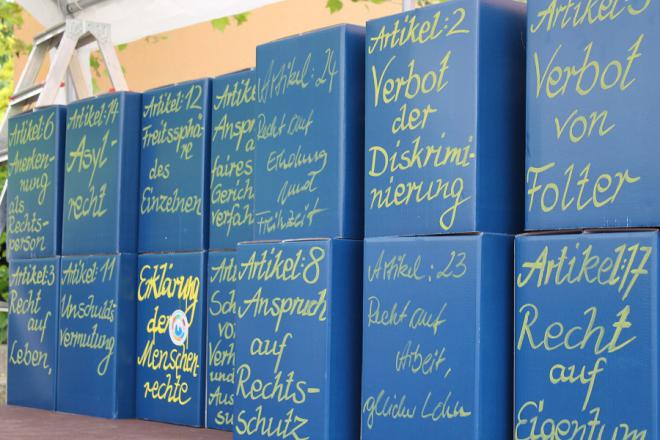 Artikel: 6
Anerken-
nung
als
Rechts-
person
Artikel: 14
Asyl-
recht
Artikel: 12
Freitssphä-
re
des
Einzelnen
Artik
Anspr
a
faires
Gerich
verfah
Artikel: 24
Recht auf
Erholung
und
Freizeit
Artikel: 2
Verbot
der
Diskrimi-
nierung
Artikel: 5
Verbot
von
Folter
Artikel: 3
Recht
auf
Leben,
Artikel: 11
Unschulds
Vermutung
Erklärung
der
Menschen-
rechte
Arti
Sch
vo
Verh
und
Aus
su
Artikel: 8
Anspruch
auf
Rechts-
Schutz
Artikel: 23
Recht auf
Arbeit,
gleicher Lohn
Artikel: 17
Recht
auf
Eigentum